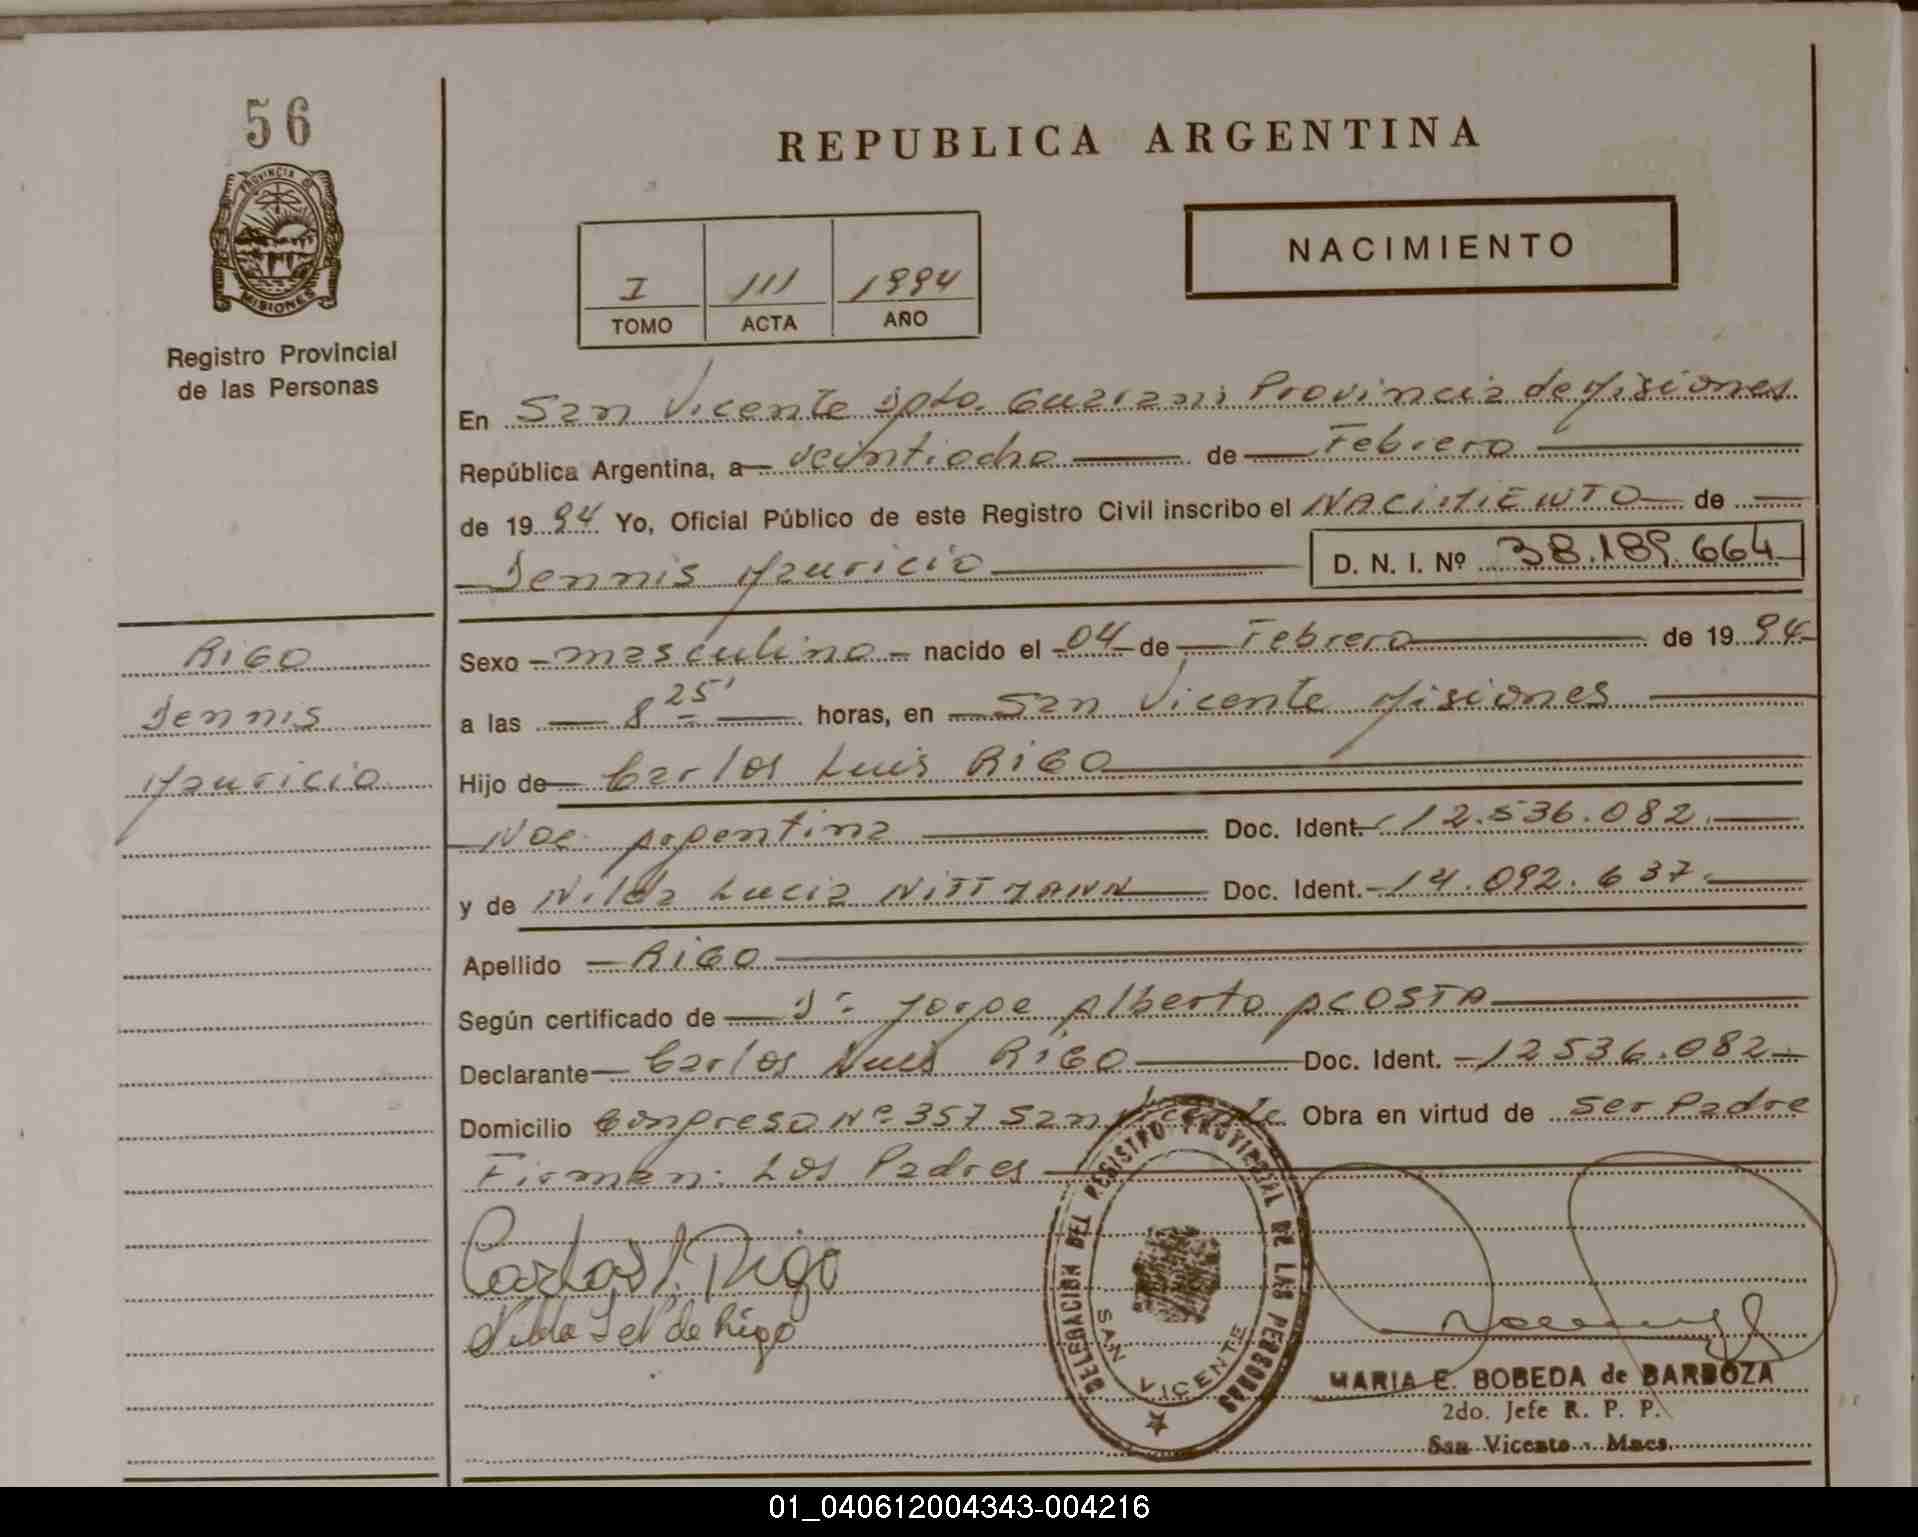 56
PROVINCIA DE
MISIONES
Registro Provincial
de las Personas
REPUBLICA ARGENTINA
NACIMIENTO
I 111 1994
TOMO ACTA AÑO
En San Vicente Dpto. Guarani Provincia de Misiones
República Argentina, a veintiocho de Febrero
de 1994 Yo, Oficial Público de este Registro Civil inscribo el NACIMIENTO de
Dennis Mauricio D. N. I. Nº 38.189.664
RIGO
Dennis
Mauricio
Sexo masculino nacido el 04 de Febrero de 1994
a las 8 25' horas, en San Vicente Misiones
Hijo de Carlos Luis RIGO
Nac. Argentina Doc. Ident. 12.536.082
y de Nilda Lucia NITTMANN Doc. Ident. 14.092.637
Apellido RIGO
Según certificado de Dr. Jorge Alberto ACOSTA
Declarante Carlos Luis RIGO Doc. Ident. 12536.082
Domicilio Congreso Nº 357 San Vicente Obra en virtud de ser Padre
Firman: Los Padres
Carlos L. Rigo
Nilda L de Rigo
DELEGACION DEL REGISTRO PROVINCIAL DE LAS PERSONAS
SAN VICENTE
MARIA E. BOBEDA de BARBOZA
2do. Jefe R. P. P.
San Vicente - Mnes.
01_040612004343-004216